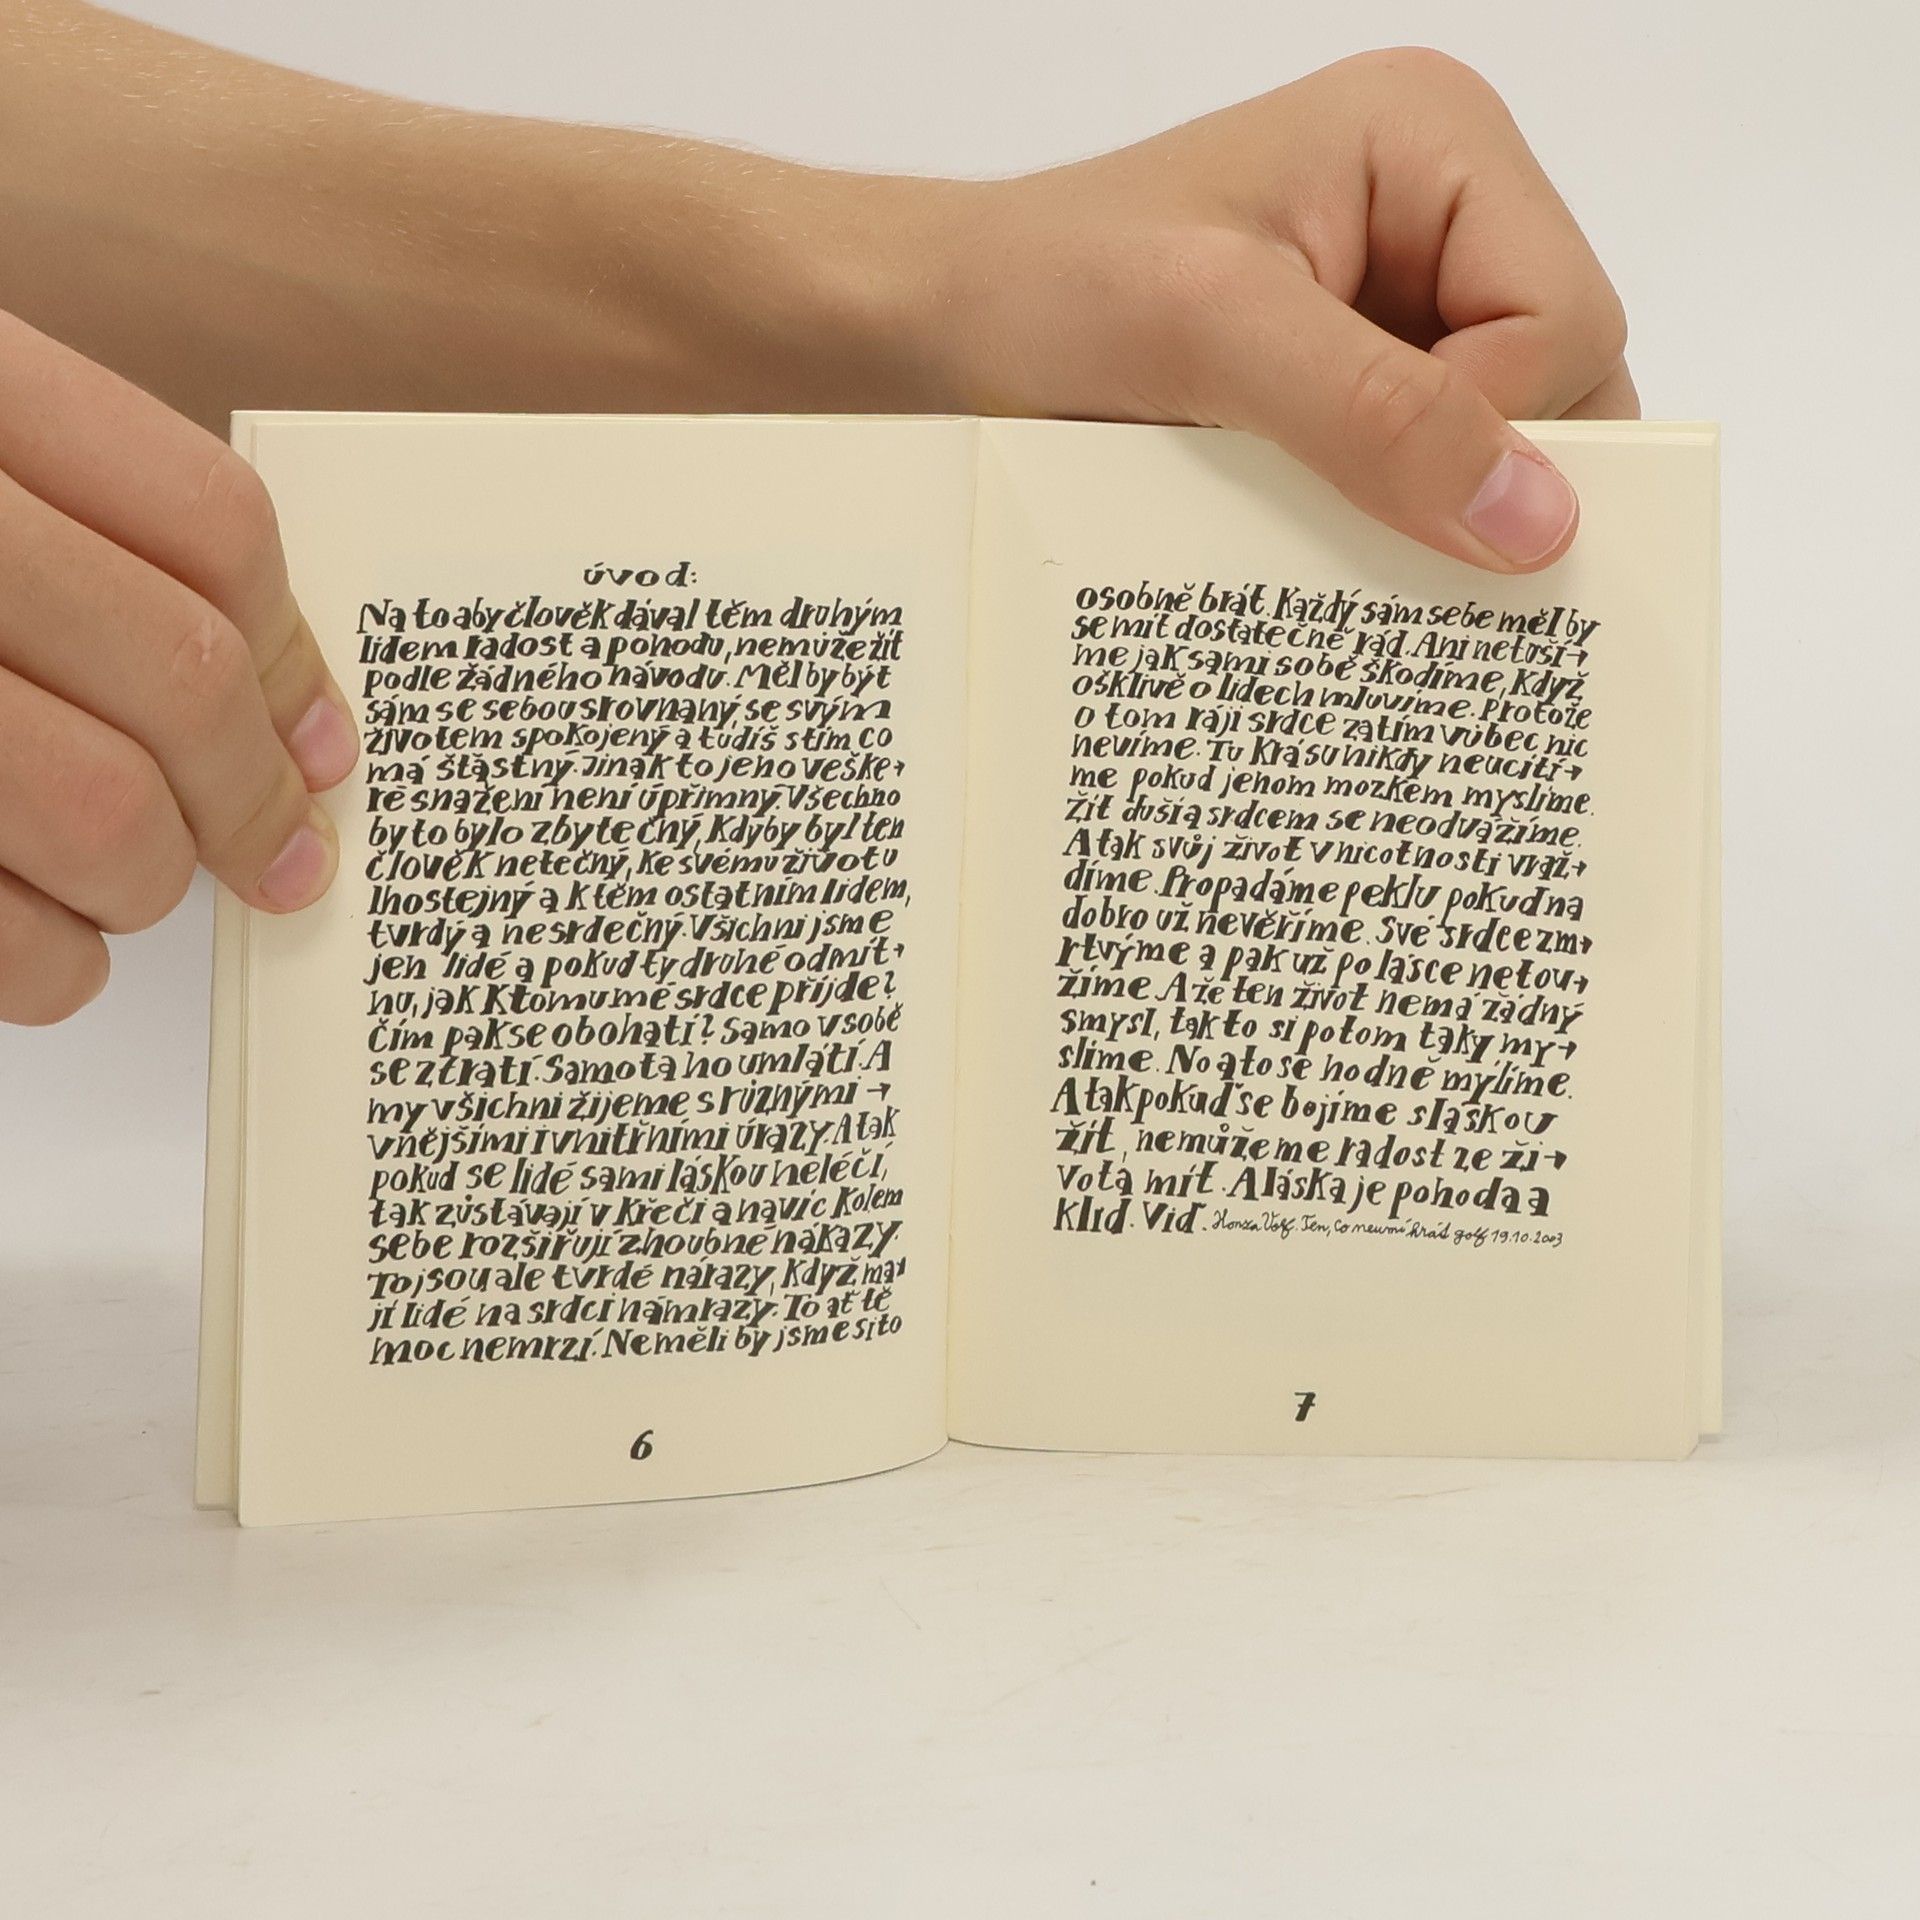 úvod:
Na to aby člověk dával těm druhým
lidem radost a pohodu, nemůže žít
podle žádného návodu. Měl by být
sám se sebou srovnaný, se svým
životem spokojený a tudíš s tím co
má šťastný. Jinak to jeho veške→
ré snažení není úpřímný. Všechno
by to bylo zbytečný, Kdyby byl ten
člověk netečný, ke svému životu
lhostejný a k těm ostatním lidem,
tvrdý a nesrdečný. Všichni jsme
jen lidé a pokud ty druhé odmít→
nu, jak k tomu mé srdce příjde?
Čím pak se obohatí? Samo v sobě
se ztratí. Samota ho umlátí. A
my všichni žijeme s různými →
vnějšími i vnitřními úrazy. A tak
pokud se lidé sami láskou neléčí,
tak zůstávají v křeči a navíc kolem
sebe rozšiřují zhoubné nákazy.
To jsou ale tvrdé nárazy, Když ma→
jí lidé na srdci námrazy. To ať tě
moc nemrzí. Neměli by jsme si to
6
osobně brát. Každý sám sebe měl by
se mít dostatečně rád. Ani netuší→
me jak sami sobě škodíme, Když
ošklivě o lidech mluvíme. Protože
o tom ráji srdce zatím vůbec nic
nevíme. Tu krásu nikdy neucítí→
me pokud jenom mozkem myslíme.
Žít duší a srdcem se neodvážíme.
A tak svůj život v nicotnosti vraž→
díme. Propadáme peklu pokud na
dobro už nevěříme. Své srdce zm→
rtvýme a pak už po lásce netou→
žíme. A že ten život nemá žádný
smysl, tak to si potom taky my→
slíme. No a to se hodně mýlíme.
A tak pokuď se bojíme s láskou
žít, nemůžeme radost ze ži→
vota mít. A láska je pohoda a
klid. Viď. Honza Volf. Ten, co neumí hrát golf 19.10.2003
7